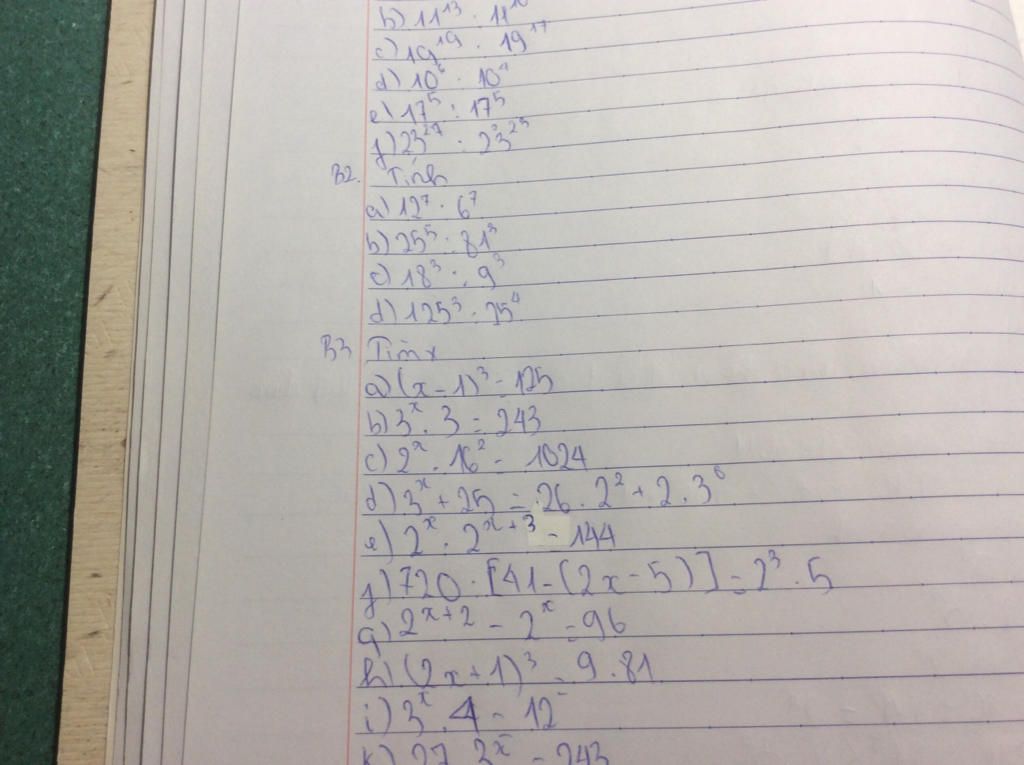 b) 11¹³ : 11¹⁰
c) 19¹⁹ : 19¹⁷
d) 10⁶ : 10⁴
e) 17⁵ : 17⁵
f) 23²⁷ : 23²³
B2. Tính
a) 12⁷ : 6⁷
b) 25⁵ : 81³
c) 18³ : 9³
d) 125³ : 25⁴
B3 Tìm x
a) (x - 1)³ = 125
b) 3ˣ . 3 = 243
c) 2ˣ . 16² = 1024
d) 3ˣ + 25 = 26 . 2² + 2 . 3⁰
e) 2ˣ . 2ˣ⁺³ = 144
f) 720 : [41 - (2x - 5)] = 2³ . 5
g) 2ˣ⁺² - 2ˣ = 96
h) (2x + 1)³ = 9 . 81
i) 3ˣ . 4 = 12
k) 27 . 3ˣ = 243